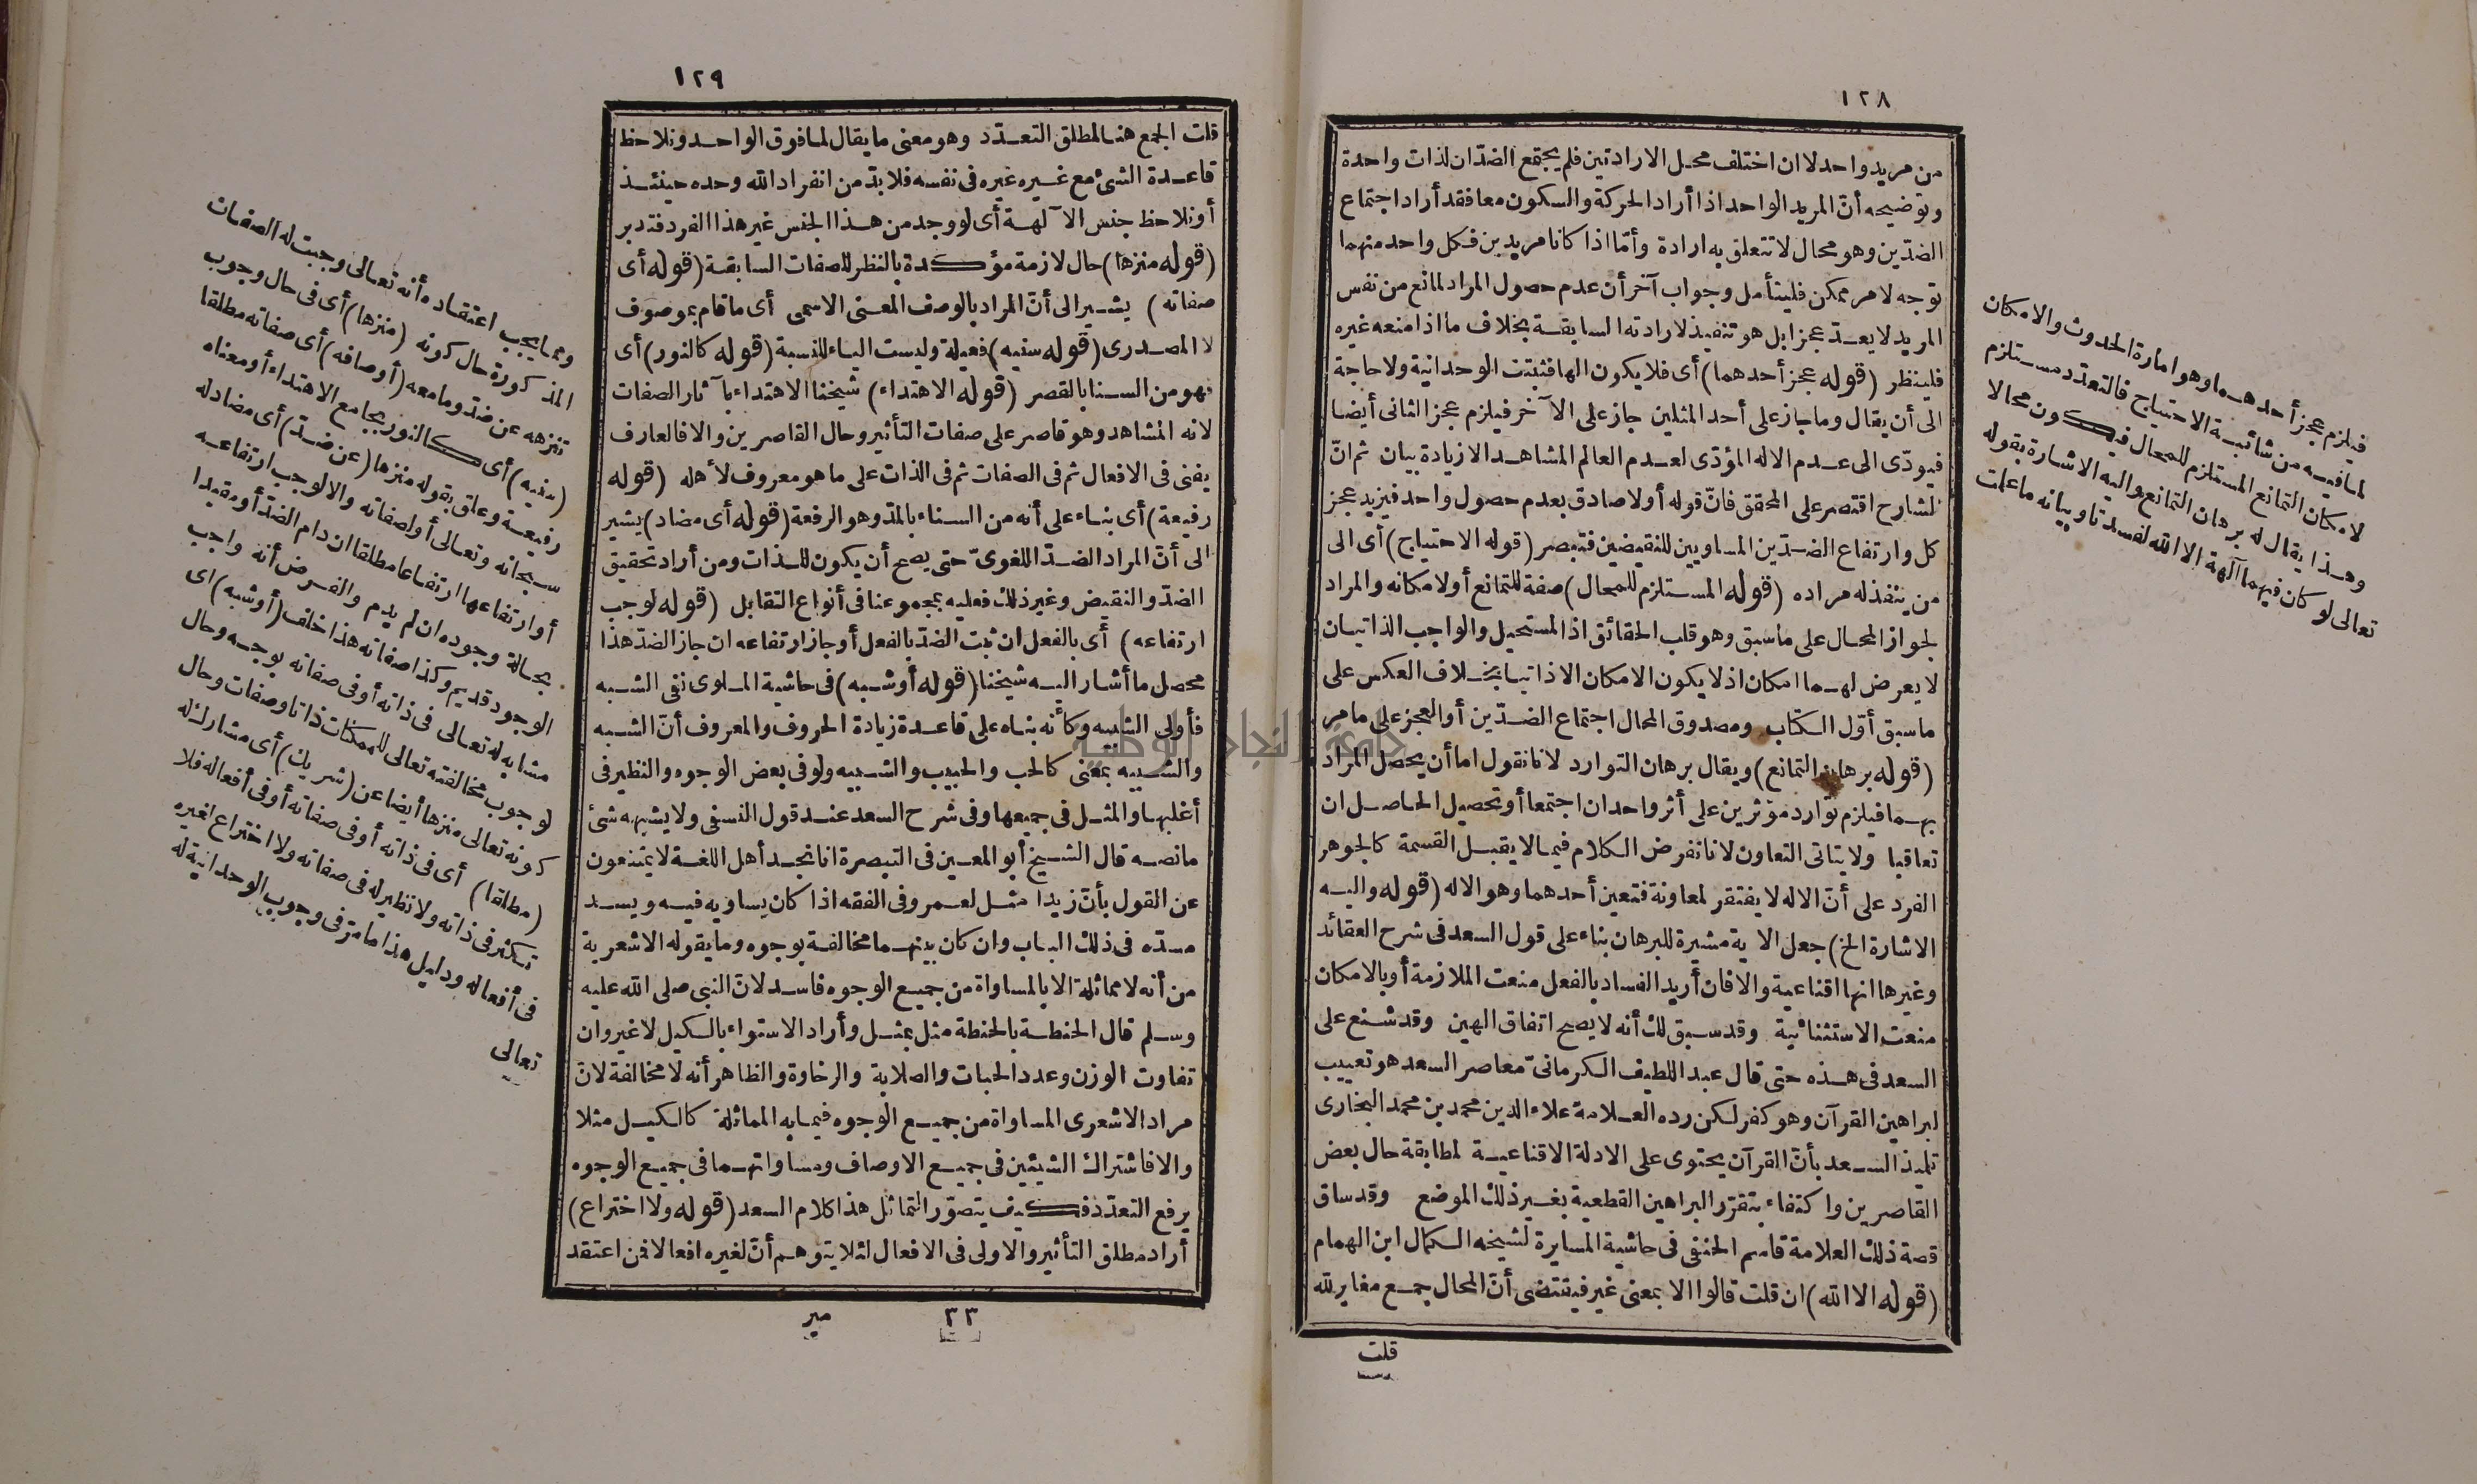 ١٢٨
من مريد واحد لا ان اختلف محل الارادتين فلم يجتمع الضدّان لذات واحدة
وتوضيحه أنّ المريد الواحد اذا أراد الحركة والسكون معا فقد أراد اجتماع
الضدّين وهو محال لا تتعلق به ارادة وأمّا اذا كانا مريدين فكل واحد منهما
توجه لامر ممكن فليتأمل وجواب آخر أن عدم حصول المراد لمانع من نفس
المريد لا يعدّ عجزا بل هو تنفيذ لارادته السابقة بخلاف ما اذا منعه غيره
فلينظر (قوله عجز أحدهما) أى فلا يكون الها فثبتت الوحدانية ولا حاجة
الى أن يقال وما جاز على أحد المثلين جاز على الآخر فيلزم عجز الثانى أيضا
فيودّى الى عدم الاله المؤدّى لعدم العالم المشاهد الا زيادة بيان ثم انّ
الشارح اقتصر على المحقق فانّ قوله أولا صادق بعدم حصول واحد فيزيد عجز
كل وارتفاع الضدّين المساويين للنقيضين فتبصر (قوله الاحتياج) أى الى
من ينفذ له مراده (قوله المستلزم للمحال) صفة للتمانع أولا مكانه والمراد
لجواز المحال على ما سبق وهو قلب الحقائق اذ المستحيل والواجب الذاتيان
لا يعرض لهما امكان اذ لا يكون الامكان الا ذاتيا بخلاف العكس على
ما سبق أوّل الكتاب ومصدوق المحال اجتماع الضدّين أو العجز على ما مر
(قوله برهان التمانع) ويقال برهان التوارد لانا نقول اما أن يحصل المراد
بهما فيلزم توارد مؤثرين على أثر واحد ان اجتمعا أو تحصيل الحاصل ان
تعاقبا ولا يتاتى التعاون لانا نفرض الكلام فيما لا يقبل القسمة كالجوهر
الفرد على أنّ الاله لا يفتقر لمعاونة فتعين أحدهما وهو الاله (قوله واليه
الاشارة الخ) جعل الاية مشيرة للبرهان بناء على قول السعد فى شرح العقائد
وغيرها انها اقناعية والا فان أريد الفساد بالفعل منعت الملازمة أو بالامكان
منعت الاستثنائية وقد سبق لك أنه لا يصح اتفاق الهين وقد شنع على
السعد فى هذه حتى قال عبد اللطيف الكرمانىّ معاصر السعد هو تعييب
لبراهين القرآن وهو كفر لكن رده العلامة علاء الدين محمد بن محمد البخارى
تلميذ السعد بأنّ القرآن يحتوى على الادلة الاقناعية لمطابقة حال بعض
القاصرين واكتفاء بتقرّر البراهين القطعية بغير ذلك الموضع وقد ساق
قصة ذلك العلامة قاسم الحنفى فى حاشية المسايرة لشيخه الكمال ابن الهمام
(قوله الا الله) ان قلت قالوا الا بمعنى غير فيقتضى أنّ المحال جمع مغاير لله
قلت
فيلزم عجز أحدهما وهو امارة الحدوث والامكان
لما فيه من شائبة الاحتياج فالتعدّد مستلزم
لامكان التمانع المستلزم للمحال فيكون محالا
وهذا يقال له برهان التمانع واليه الاشارة بقوله
تعالى لو كان فيهما آلهة الا الله لفسدتا وبيانه ما علمت
١٢٩
قلت الجمع هنا لمطلق التعدّد وهو معنى ما يقال لما فوق الواحد ونلاحظ
قاعدة الشئ مع غيره غيره فى نفسه فلا بدّ من انفراد الله وحده حينئذ
أو نلاحظ جنس الآلهة أى لو وجد من هذا الجنس غير هذا الفرد فتدبر
(قوله منزها) حال لازمة مؤكدة بالنظر للصفات السابقة (قوله أى
صفاته) يشير الى أنّ المراد بالوصف المعنى الاسمى أى ما قام بموصوف
لا المصدرى (قوله سنيه) فعيلة وليست الياء للنسبة (قوله كالنور) أى
فهو من السنا بالقصر (قوله الاهتداء) شيخنا الاهتداء بآثار الصفات
لانه المشاهد وهو قاصر على صفات التأثير وحال القاصرين والا فالعارف
يفنى فى الافعال ثم فى الصفات ثم فى الذات على ما هو معروف لأهله (قوله
رفيعة) أى بناء على أنه من السناء بالمدّ وهو الرفعة (قوله أى مضاد) يشير
الى أنّ المراد الضدّ اللغوىّ حتى يصح أن يكون للذات ومن أراد تحقيق
الضدّ والنقيض وغير ذلك فعليه بمجموعنا فى أنواع التقابل (قوله لوجب
ارتفاعه) أى بالفعل ان ثبت الضدّ بالفعل أو جاز ارتفاعه ان جاز الضدّ هذا
محصل ما أشار اليه شيخنا (قوله أو شبه) فى حاشية الملوى نفى الشبه
فأولى الشبيه وكأنه بناه على قاعدة زيادة الحروف والمعروف أنّ الشبه
والشبيه بمعنى كالحب والحبيب والشبيه ولو فى بعض الوجوه والنظير فى
أغلبها والمثل فى جميعها وفى شرح السعد عند قول النسفى ولا يشبهه شئ
ما نصه قال الشيخ أبو المعين فى التبصرة انا نجد أهل اللغة لا يمتنعون
عن القول بأنّ زيدا مثل لعمرو فى الفقه اذا كان يساويه فيه ويسد
مسدّه فى ذلك الباب وان كان بينهما مخالفة بوجوه وما يقوله الاشعرية
من أنه لا مماثلة الا بالمساواة من جميع الوجوه فاسد لانّ النبى صلى الله عليه
وسلم قال الحنطة بالحنطة مثل بمثل وأراد الاستواء بالكيل لا غير وان
تفاوت الوزن وعدد الحبات والصلابة والرخاوة والظاهر أنه لا مخالفة لانّ
مراد الاشعرى المساواة من جميع الوجوه فيما به المماثلة كالكيل مثلا
والا فاشتراك الشيئين فى جميع الاوصاف ومساواتهما فى جميع الوجوه
يرفع التعدّد فكيف يتصوّر التماثل هذا كلام السعد (قوله ولا اختراع)
أراد مطلق التأثير والاولى فى الافعال لئلا يتوهم أنّ لغيره افعالا فمن اعتقد
٣٣
مير
ومما يجب اعتقاده أنه تعالى وجبت له الصفات
المذكورة حال كونه (منزها) أى فى حال وجوب
تنزهه عن ضد وما معه (أوصافه) أى صفاته مطلقا
(سنيه) أى كالنور بجامع الاهتداء أو معناه
رفيعة وعلق بقوله منزها (عن ضد) أى مضاد له
سبحانه وتعالى أو لصفاته والا لوجب ارتفاعه
أو ارتفاعها ارتفاعا مطلقا ان دام الضدّ أو مقيدا
بحالة وجوده ان لم يدم والفرض أنه واجب
الوجود قديم وكذا صفاته هذا خلف (أو شبه) اى
مشابه له تعالى فى ذاته أو فى صفاته بوجه وحال
لوجوب مخالفته تعالى للممكنات ذاتا وصفات وحال
كونه تعالى منزها أيضا عن (شريك) أى مشارك له
(مطلقا) أى فى ذاته أو فى صفاته أو فى أفعاله فلا
تكثر فى ذاته ولا نظير له فى صفاته ولا اختراع لغيره
فى أفعاله ودليل هذا ما مرّ فى وجوب الوحدانية له
تعالى
جامعة النجاح الوطنية